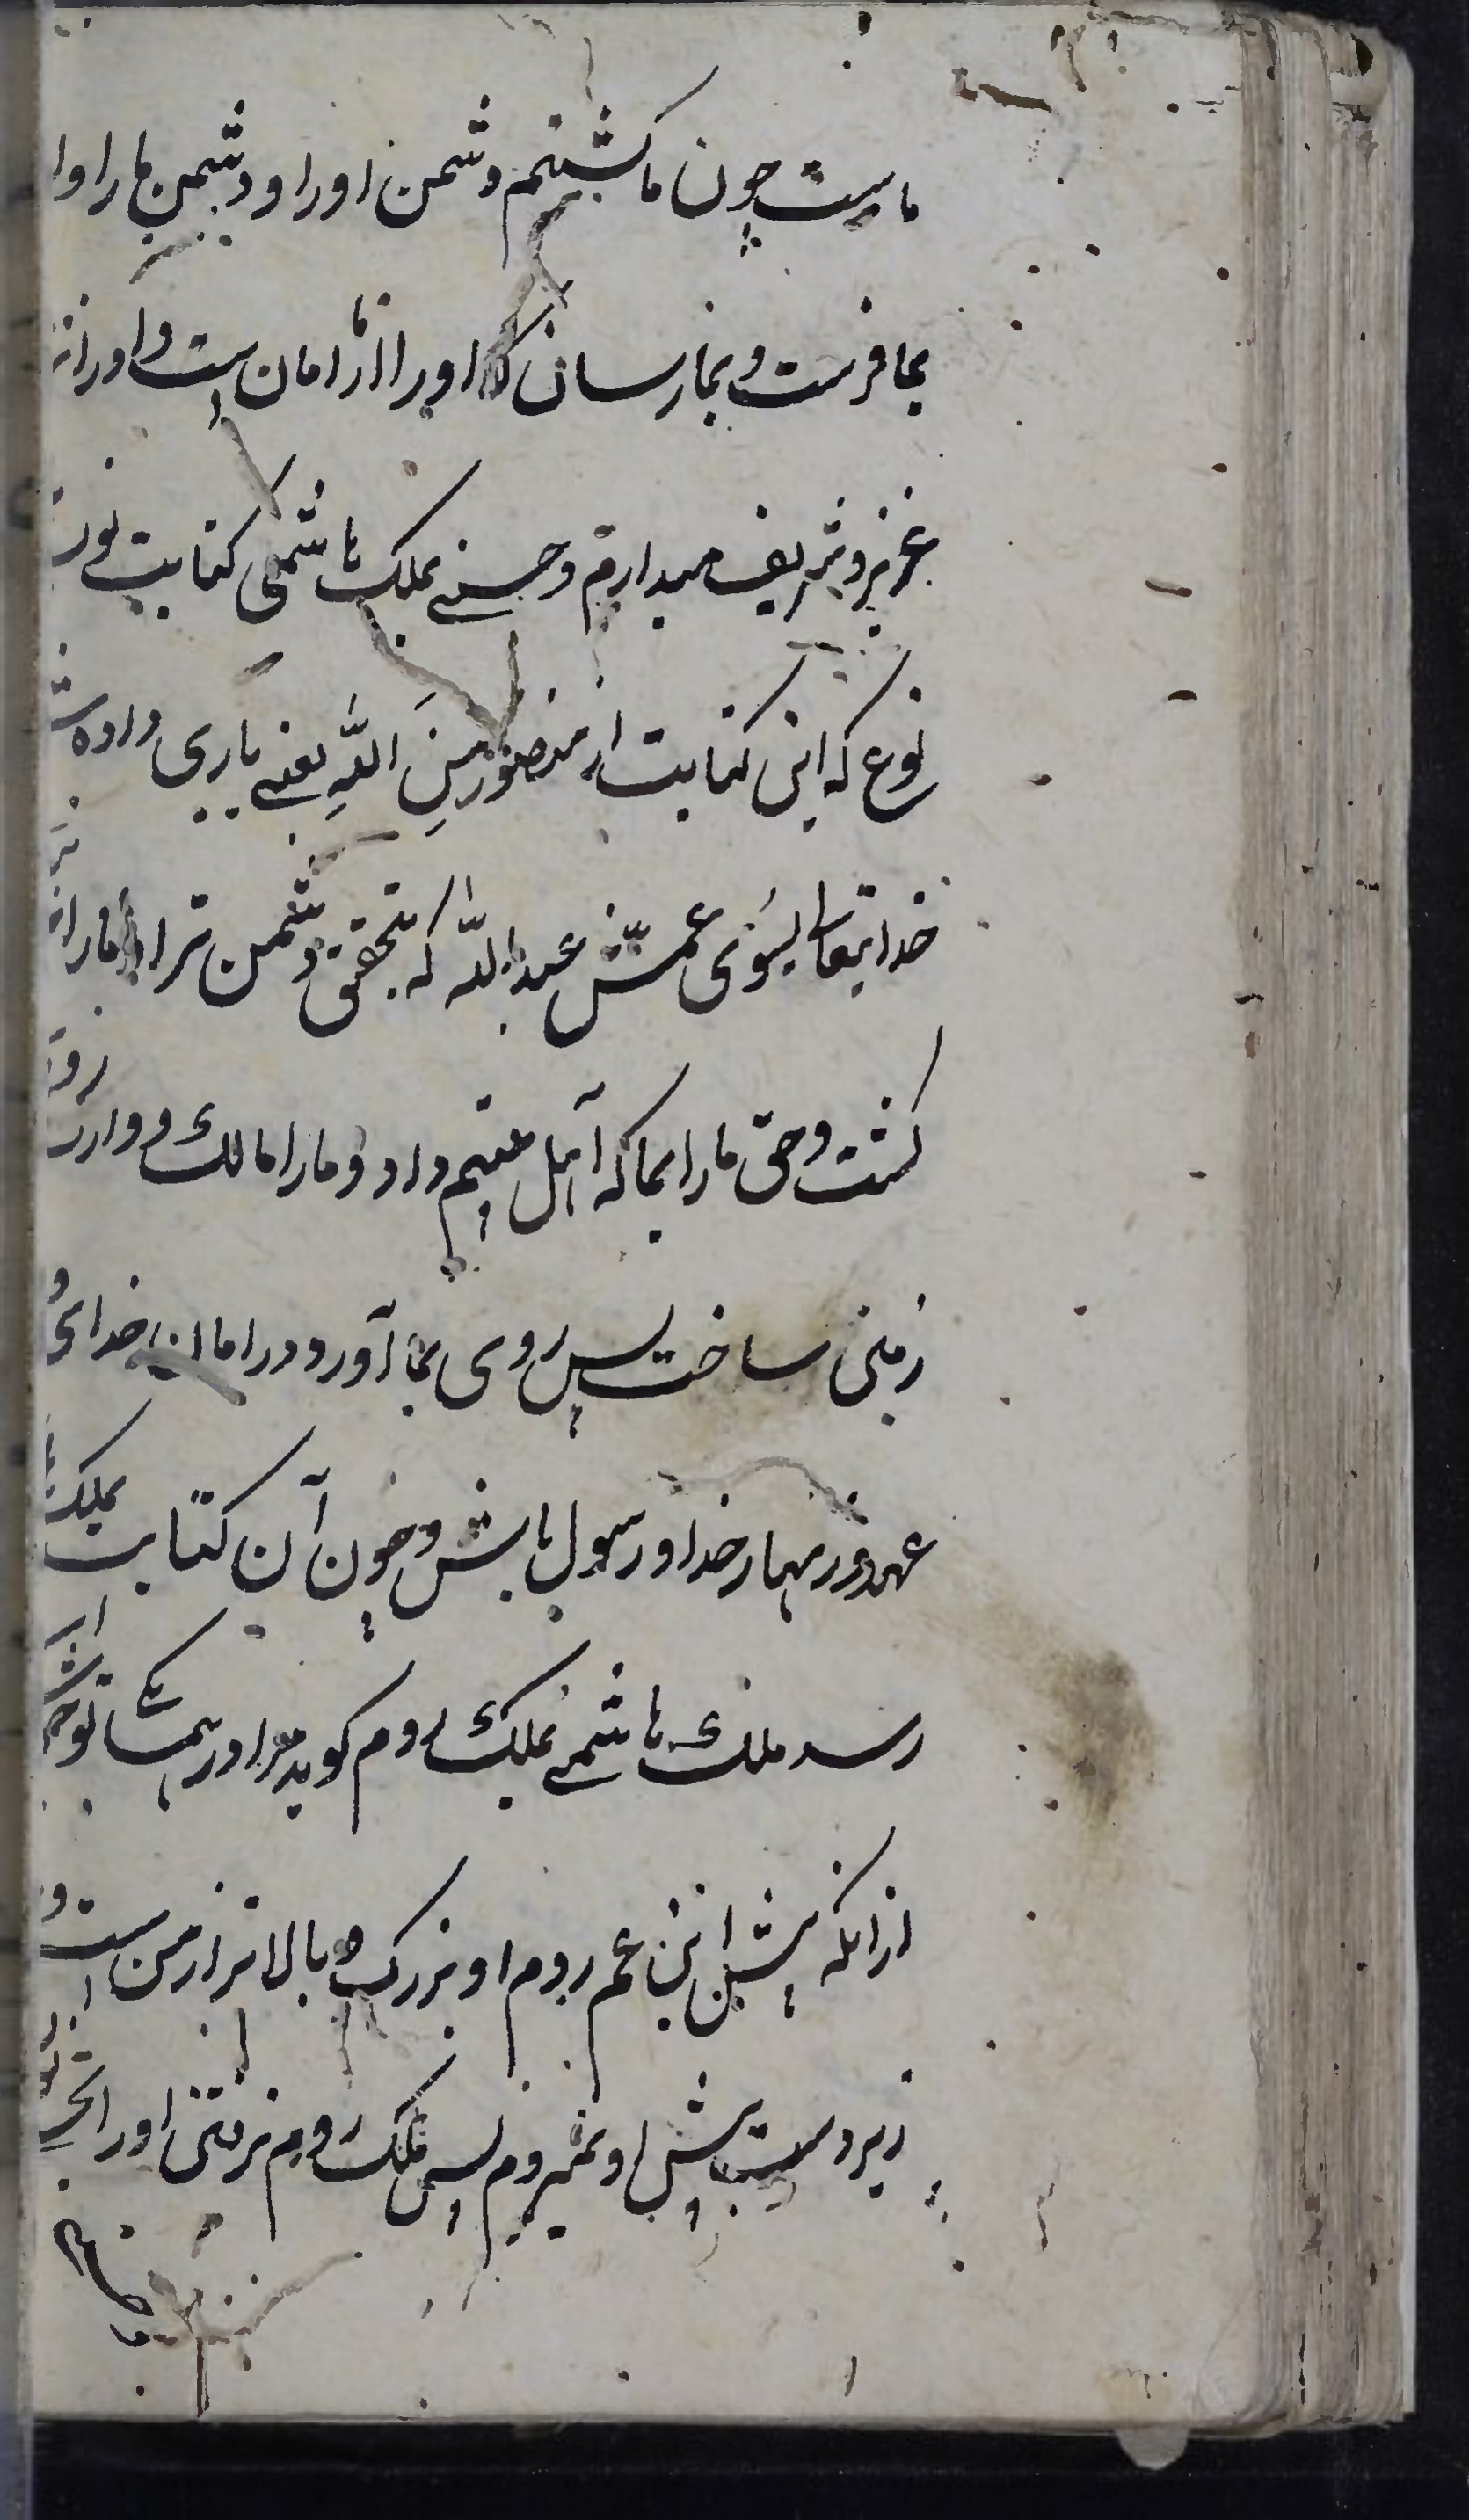 ماست چون ما کشتیم دشمن اورا و دشمن ما را اورا
بما فرست و بما رسان که اورا از ما امان است و اورا
عزیز و شریف میداریم و حسنی بملک هاشمی کتابت
نوع که این کتابت از منصور مِنَ اللَّهِ یعنی یاری داده شده
خدایتعالی بسوی عمّش عبدالله که بتحقیق دشمن ترا خدا ما را
کشت و حق ما را بما که آمل مقیم داد و ما را مالک و وارث
زمین ساخت پس روی بما آور و در امان خدای و
عهد و زنهار خدا و رسول باش و چون آن کتابت بملک
رسد ملک هاشمی بملک روم کوید مرا در همسا توجه
از آنکه پیش ابن عم روم او بزرک و بالاتر از من است و
زیر دست پیش او نمیروم پس ملک روم نرفتن اورا